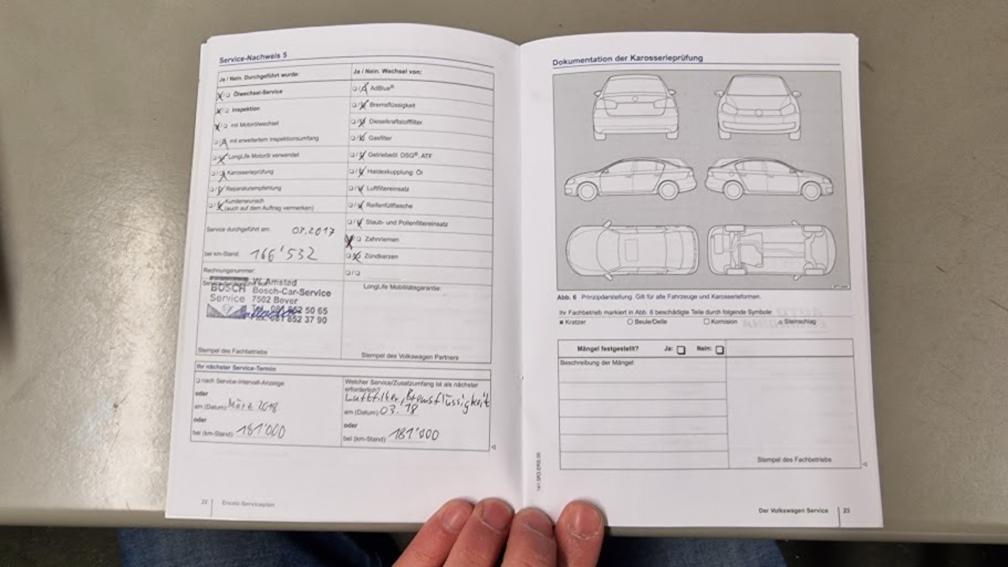 Service-Nachweis 5
Ja / Nein. Durchgeführt wurde:
Ölwechsel-Service
Inspektion
mit Motorölwechsel
mit erweitertem Inspektionsumfang
LongLife Motoröl verwendet
Karosserieprüfung
Reparaturempfehlung
Kundenwunsch
(auch auf dem Auftrag vermerken)
Service durchgeführt am: 03.2017
bei km-Stand: 166'532
Rechnungsnummer:
BOSCH
Service
W. Amstad
Bosch-Car-Service
7502 Bever
Tel. 081 852 50 65
Fax. 081 852 37 90
Stempel des Fachbetriebs
Ja / Nein. Wechsel von:
AdBlue®
Bremsflüssigkeit
Dieselkraftstofffilter
Gasfilter
Getriebeöl: DSG®, ATF
Haldexkupplung: Öl
Luftfiltereinsatz
Reifenfüllflasche
Staub- und Pollenfiltereinsatz
Zahnriemen
Zündkerzen
LongLife Mobilitätsgarantie:
Stempel des Volkswagen Partners
Ihr nächster Service-Termin
nach Service-Intervall-Anzeige
oder
am (Datum): März 2018
oder
bei (km-Stand): 181'000
Welcher Service/Zusatzumfang ist als nächster
erforderlich?
Luftfilter, Bremsflüssigkeit
am (Datum): 03.18
oder
bei (km-Stand): 181'000
22 Ersatz-Serviceplan
Dokumentation der Karosserieprüfung
Abb. 6 Prinzipdarstellung. Gilt für alle Fahrzeuge und Karosserieformen.
Ihr Fachbetrieb markiert in Abb. 6 beschädigte Teile durch folgende Symbole:
Kratzer Beule/Delle Korrosion Steinschlag
Mängel festgestellt? Ja: Nein:
Beschreibung der Mängel:
Stempel des Fachbetriebs
Der Volkswagen Service 23